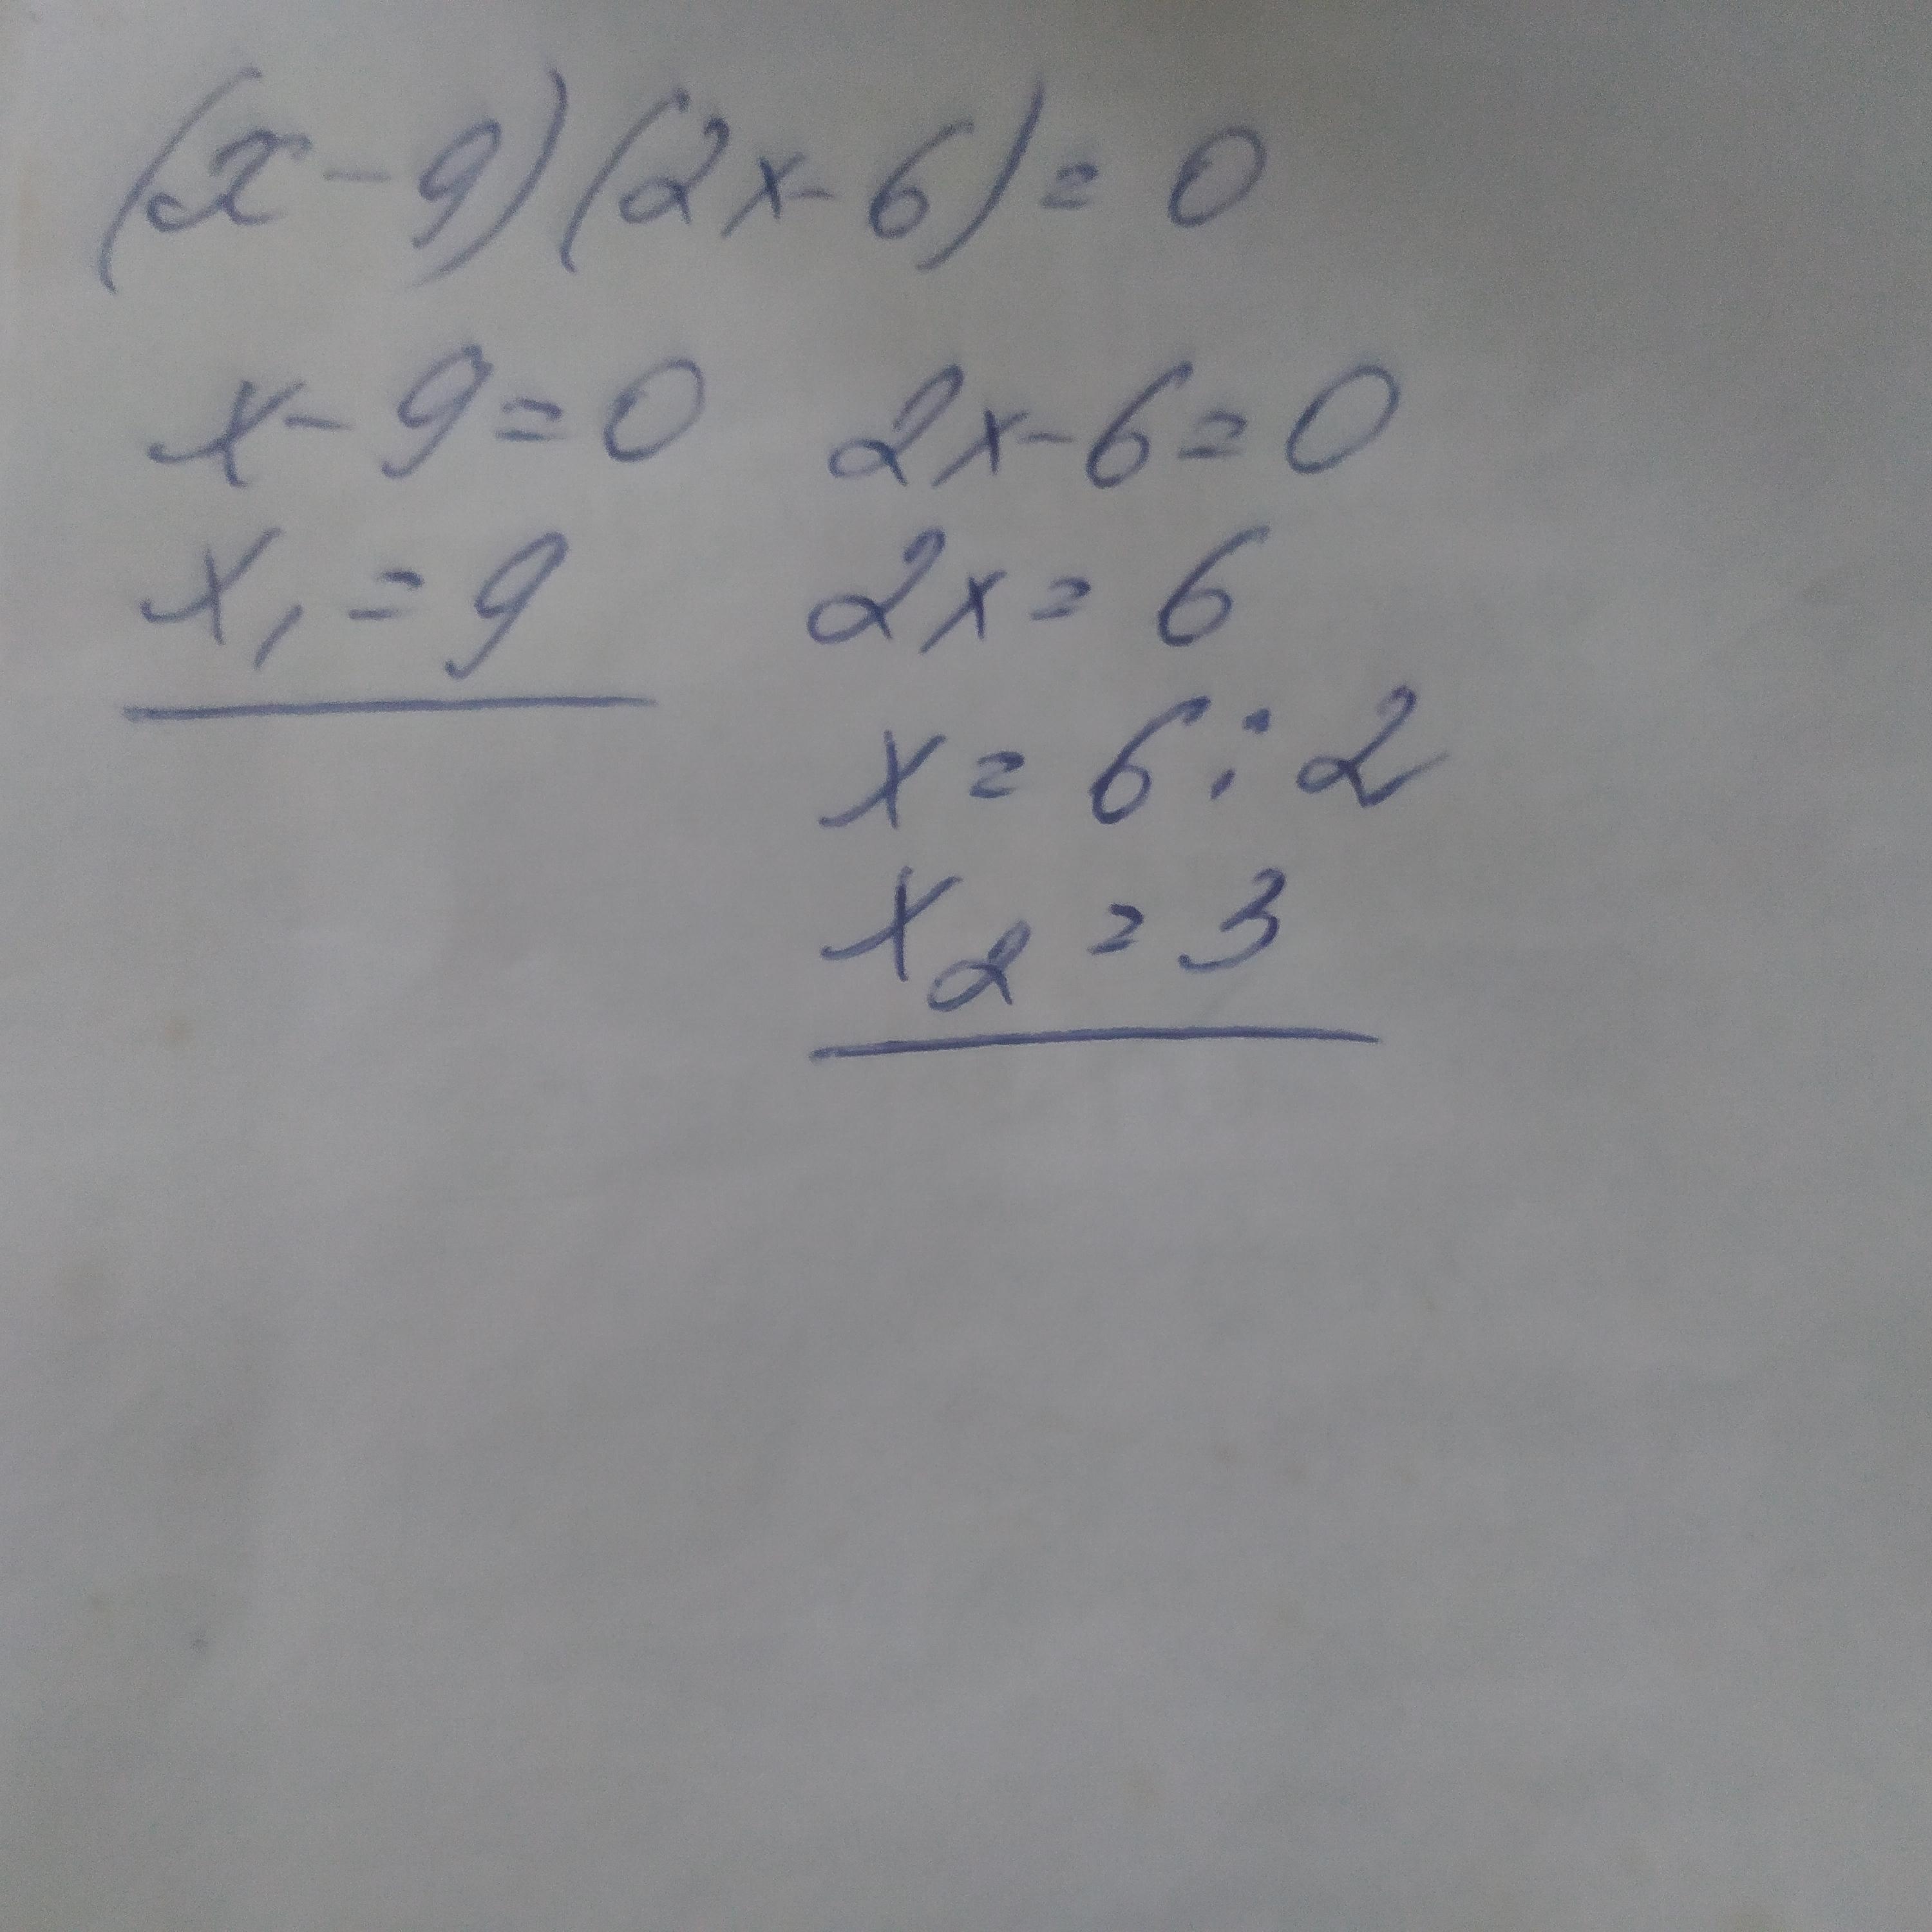 (x - 9)(2x - 6) = 0
x - 9 = 0 2x - 6 = 0
x₁ = 9 2x = 6
x = 6 : 2
x₂ = 3